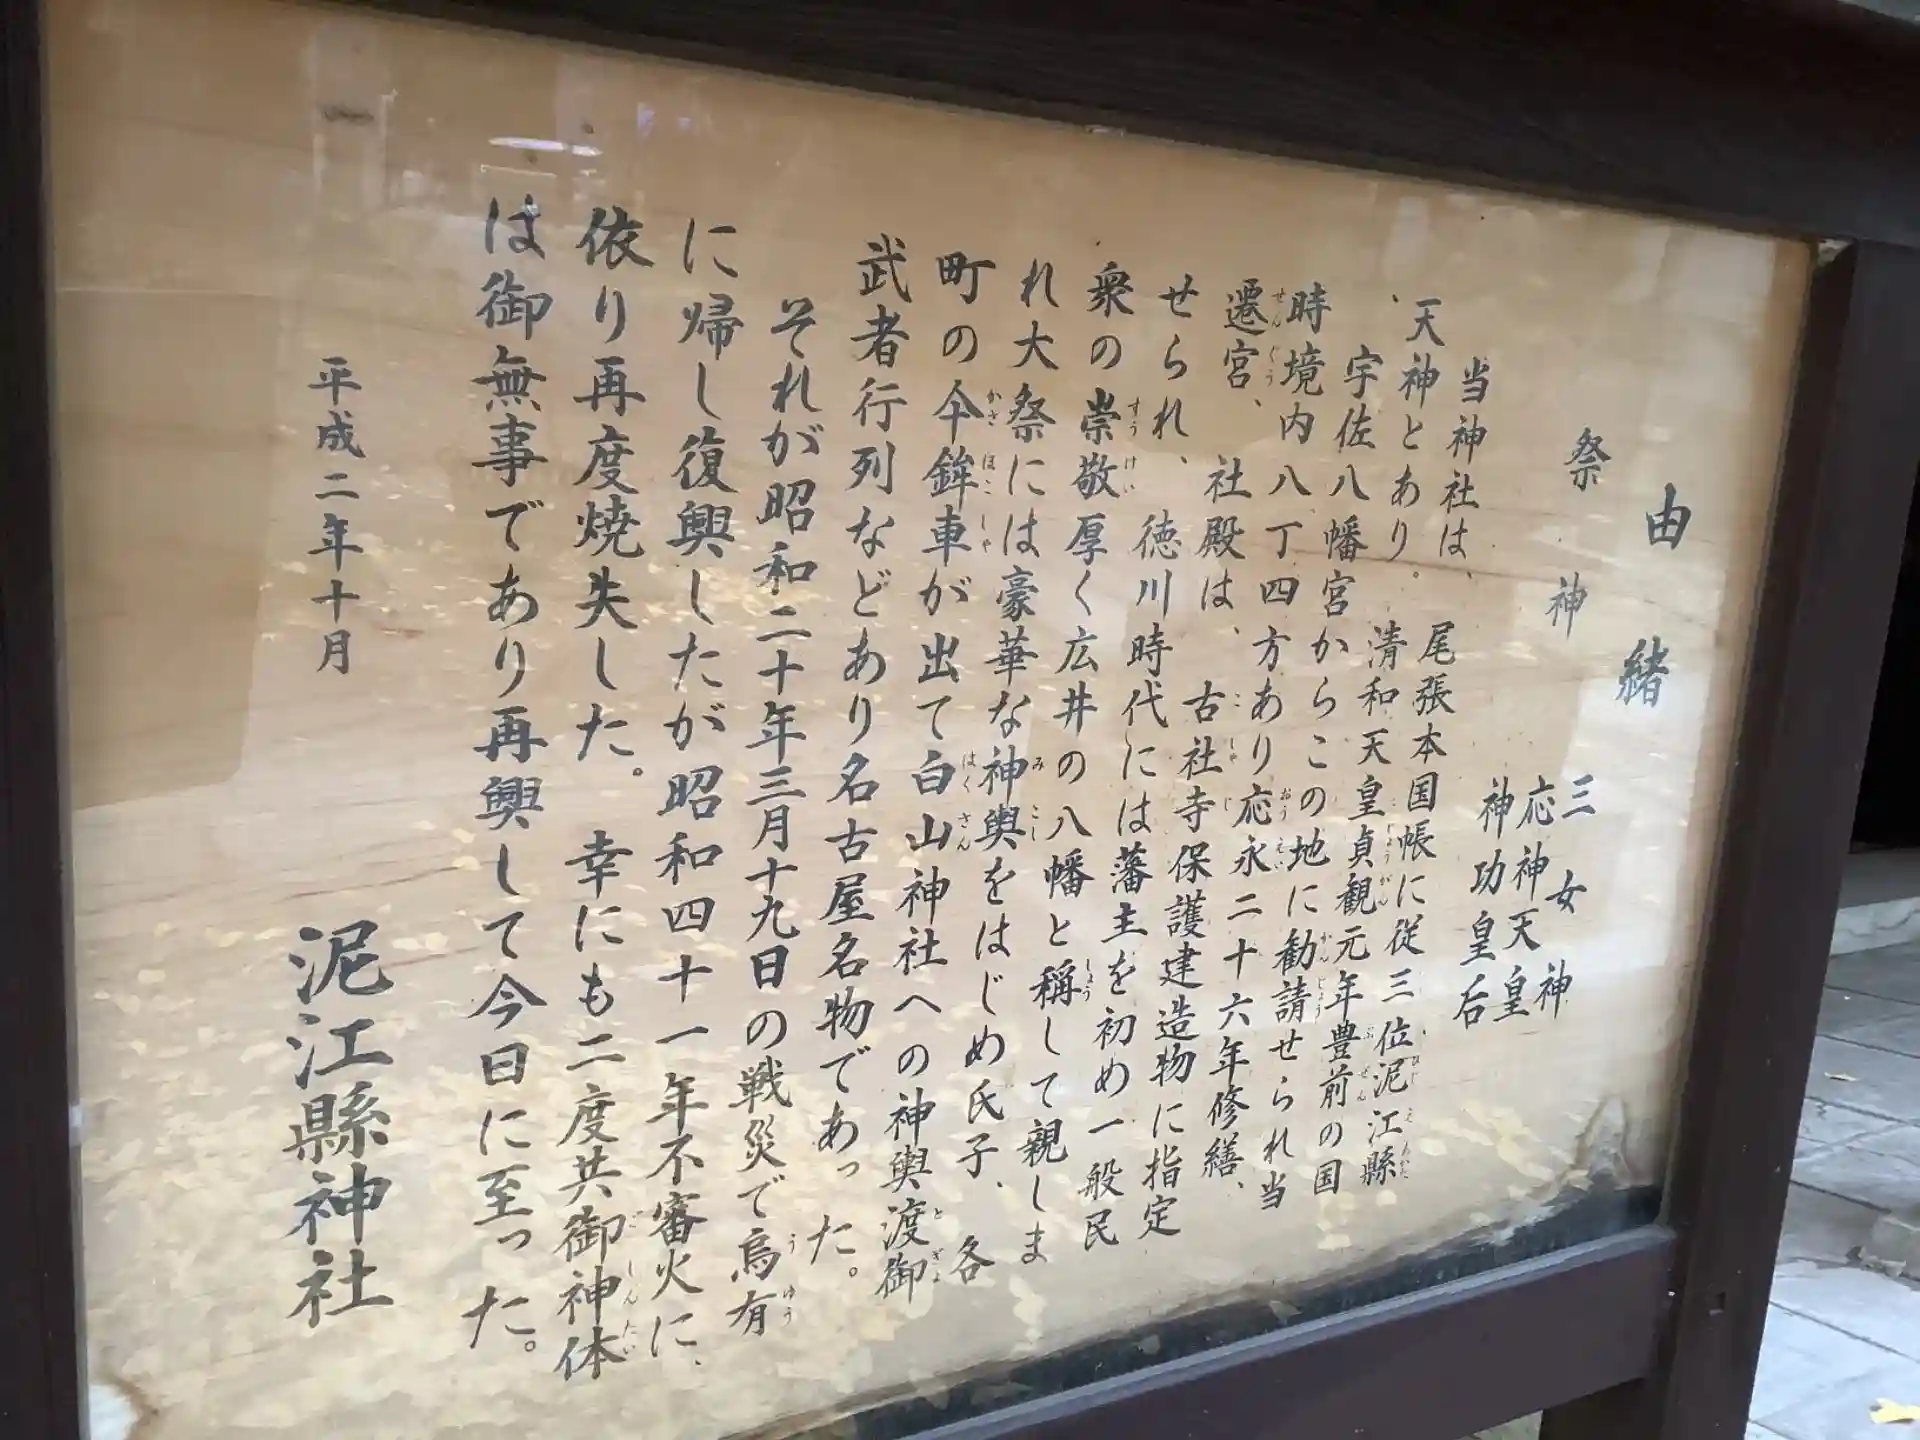 由緒
祭神 三女神
応神天皇
神功皇后
当神社は、尾張本国帳に従三位泥江縣
天神とあり。清和天皇貞観元年豊前の国
宇佐八幡宮からこの地に勧請せられ当
時境内八丁四方あり応永二十六年修繕、
遷宮、社殿は、古社寺保護建造物に指定
せられ、徳川時代には藩主を初め一般民
衆の崇敬厚く広井の八幡と称して親しま
れ大祭には豪華な神輿をはじめ氏子、各
町の傘鉾車が出て白山神社への神輿渡御
武者行列などあり名古屋名物であった。
それが昭和二十年三月十九日の戦災で烏有
に帰し復興したが昭和四十一年不審火に、
依り再度焼失した。幸にも二度共御神体
は御無事であり再興して今日に至った。
平成二年十月
泥江縣神社